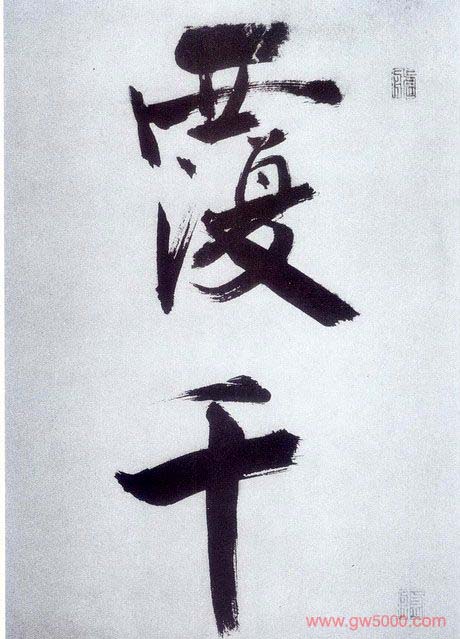 覆
千
www.gw5000.com